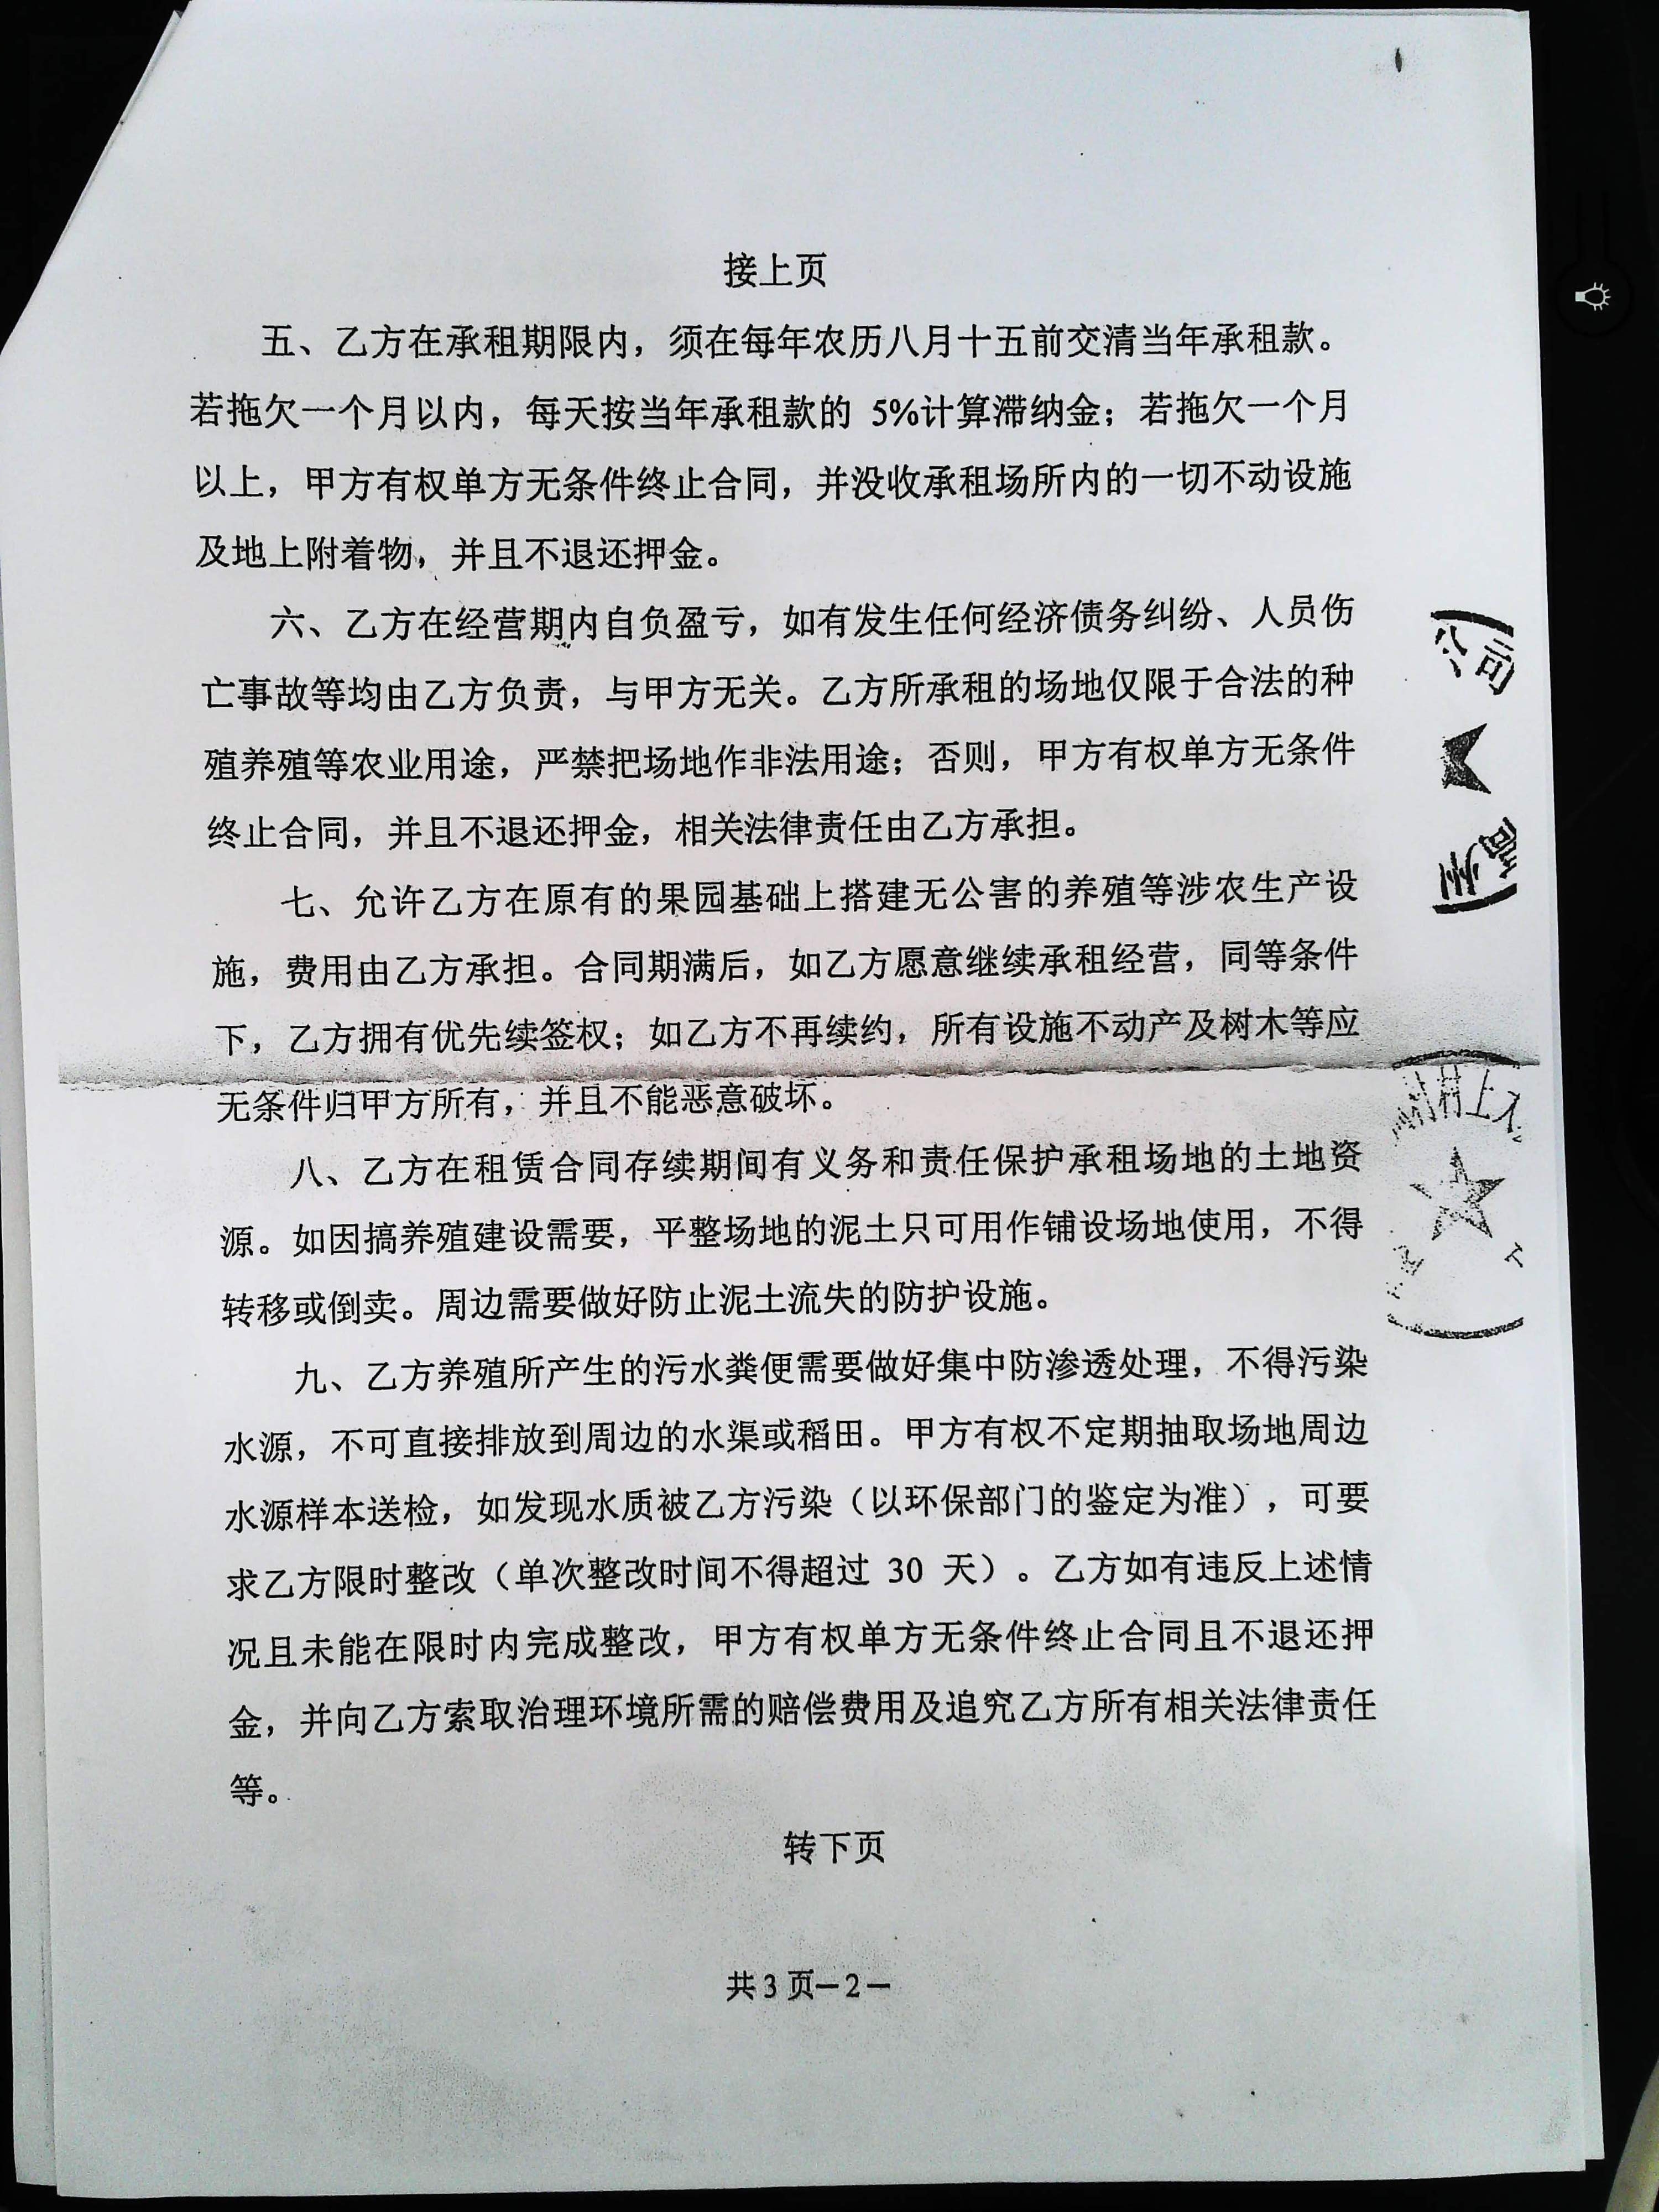 接上页
五、乙方在承租期限内，须在每年农历八月十五前交清当年承租款。
若拖欠一个月以内，每天按当年承租款的 5%计算滞纳金；若拖欠一个月
以上，甲方有权单方无条件终止合同，并没收承租场所内的一切不动设施
及地上附着物，并且不退还押金。
六、乙方在经营期内自负盈亏，如有发生任何经济债务纠纷、人员伤
亡事故等均由乙方负责，与甲方无关。乙方所承租的场地仅限于合法的种
殖养殖等农业用途，严禁把场地作非法用途；否则，甲方有权单方无条件
终止合同，并且不退还押金，相关法律责任由乙方承担。
七、允许乙方在原有的果园基础上搭建无公害的养殖等涉农生产设
施，费用由乙方承担。合同期满后，如乙方愿意继续承租经营，同等条件
下，乙方拥有优先续签权；如乙方不再续约，所有设施不动产及树木等应
无条件归甲方所有，并且不能恶意破坏。
八、乙方在租赁合同存续期间有义务和责任保护承租场地的土地资
源。如因搞养殖建设需要，平整场地的泥土只可用作铺设场地使用，不得
转移或倒卖。周边需要做好防止泥土流失的防护设施。
九、乙方养殖所产生的污水粪便需要做好集中防渗透处理，不得污染
水源，不可直接排放到周边的水渠或稻田。甲方有权不定期抽取场地周边
水源样本送检，如发现水质被乙方污染（以环保部门的鉴定为准），可要
求乙方限时整改（单次整改时间不得超过 30 天）。乙方如有违反上述情
况且未能在限时内完成整改，甲方有权单方无条件终止合同且不退还押
金，并向乙方索取治理环境所需的赔偿费用及追究乙方所有相关法律责任
等。
转下页
共 3 页－2－
公司
州
村上